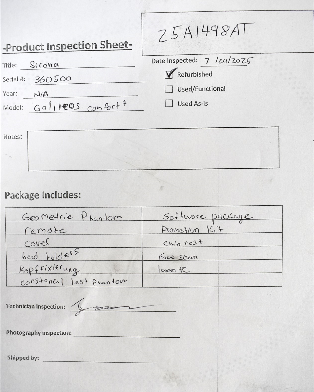 25A1498AT
-Product Inspection Sheet-
Title: Sirona
Date Inspected: 7 / /2025
Serial #: 360500
Refurbished
Year: N/A
Used/Functional
Model: Galileos comfort +
Used As-Is
Notes:
Package Includes:
Geometric Phantom
Software package
remote
Promotion Kit
cover
Chin rest
head holders
Kopffixierung
constancy test Phantom
Technician Inspection:
Photography Inspection:
Shipped by: